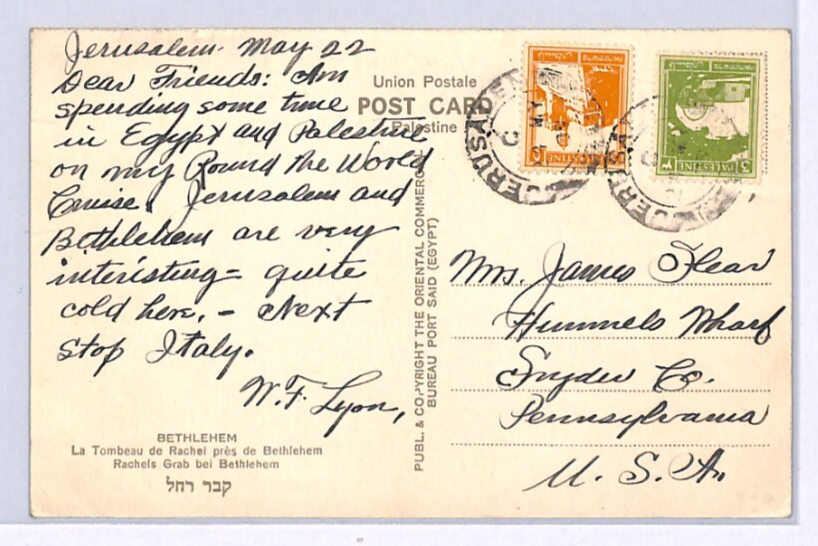 Jerusalem. May 22
Dear Friends: Am
spending some time
in Egypt and Palestine
on my Round the World
Cruise. Jerusalem and
Bethlehem are very
interesting - quite
cold here. - Next
stop Italy.
W. F. Lyon,
BETHLEHEM
La Tombeau de Rachel près de Bethlehem
Rachels Grab bei Bethlehem
קבר רחל
Union Postale
POST CARD
Palestine
PUBL. & COPYRIGHT THE ORIENTAL COMMERC
BUREAU PORT SAID (EGYPT)
PALESTINE
PALESTINE
JERUSALEM
Mrs. James Flear
Hummels Wharf
Snyder Co.
Pennsylvania
U. S. A.